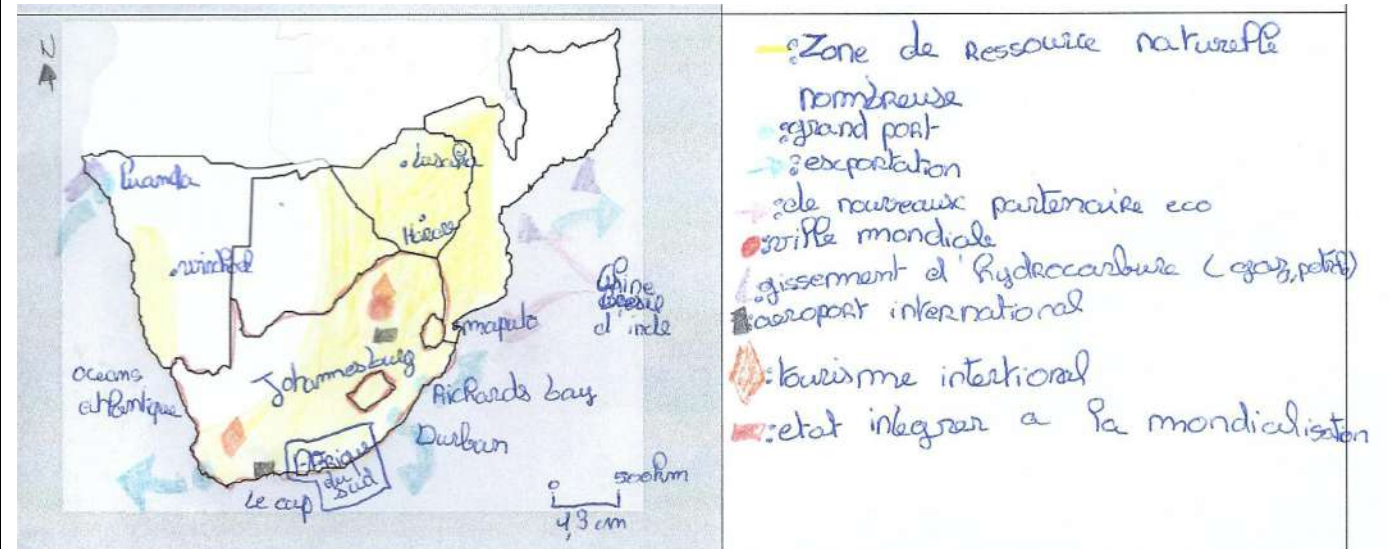 N
Luanda
Lusaka
Harare
windhek
Chine
Bresil
d'inde
maputo
Johannesburg
oceans
athentique
Richards bay
Durban
Afrique
du
sud
Le cap
0 500km
1,3 cm
: Zone de Ressource naturelle
nombreuse
: grand port
: exportation
: de nouveaux partenaire eco
: ville mondiale
: gissement d'hydrocarbure (gaz, petrole)
: aeroport international
: tourisme intertional
: etat integrer a la mondialisation